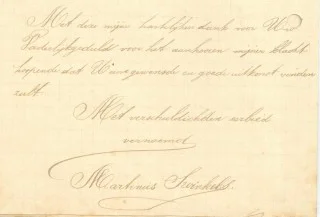 Met deze mijne hartelijken dank voor Uwd
Vaderlijk geduld voor het aanhooren mijner klacht
hoopende dat U eene gewenschte en goede uitkomst vinden
zult.
Met verschuldigden eerbied
vernoemd
Martinus Swinkels.